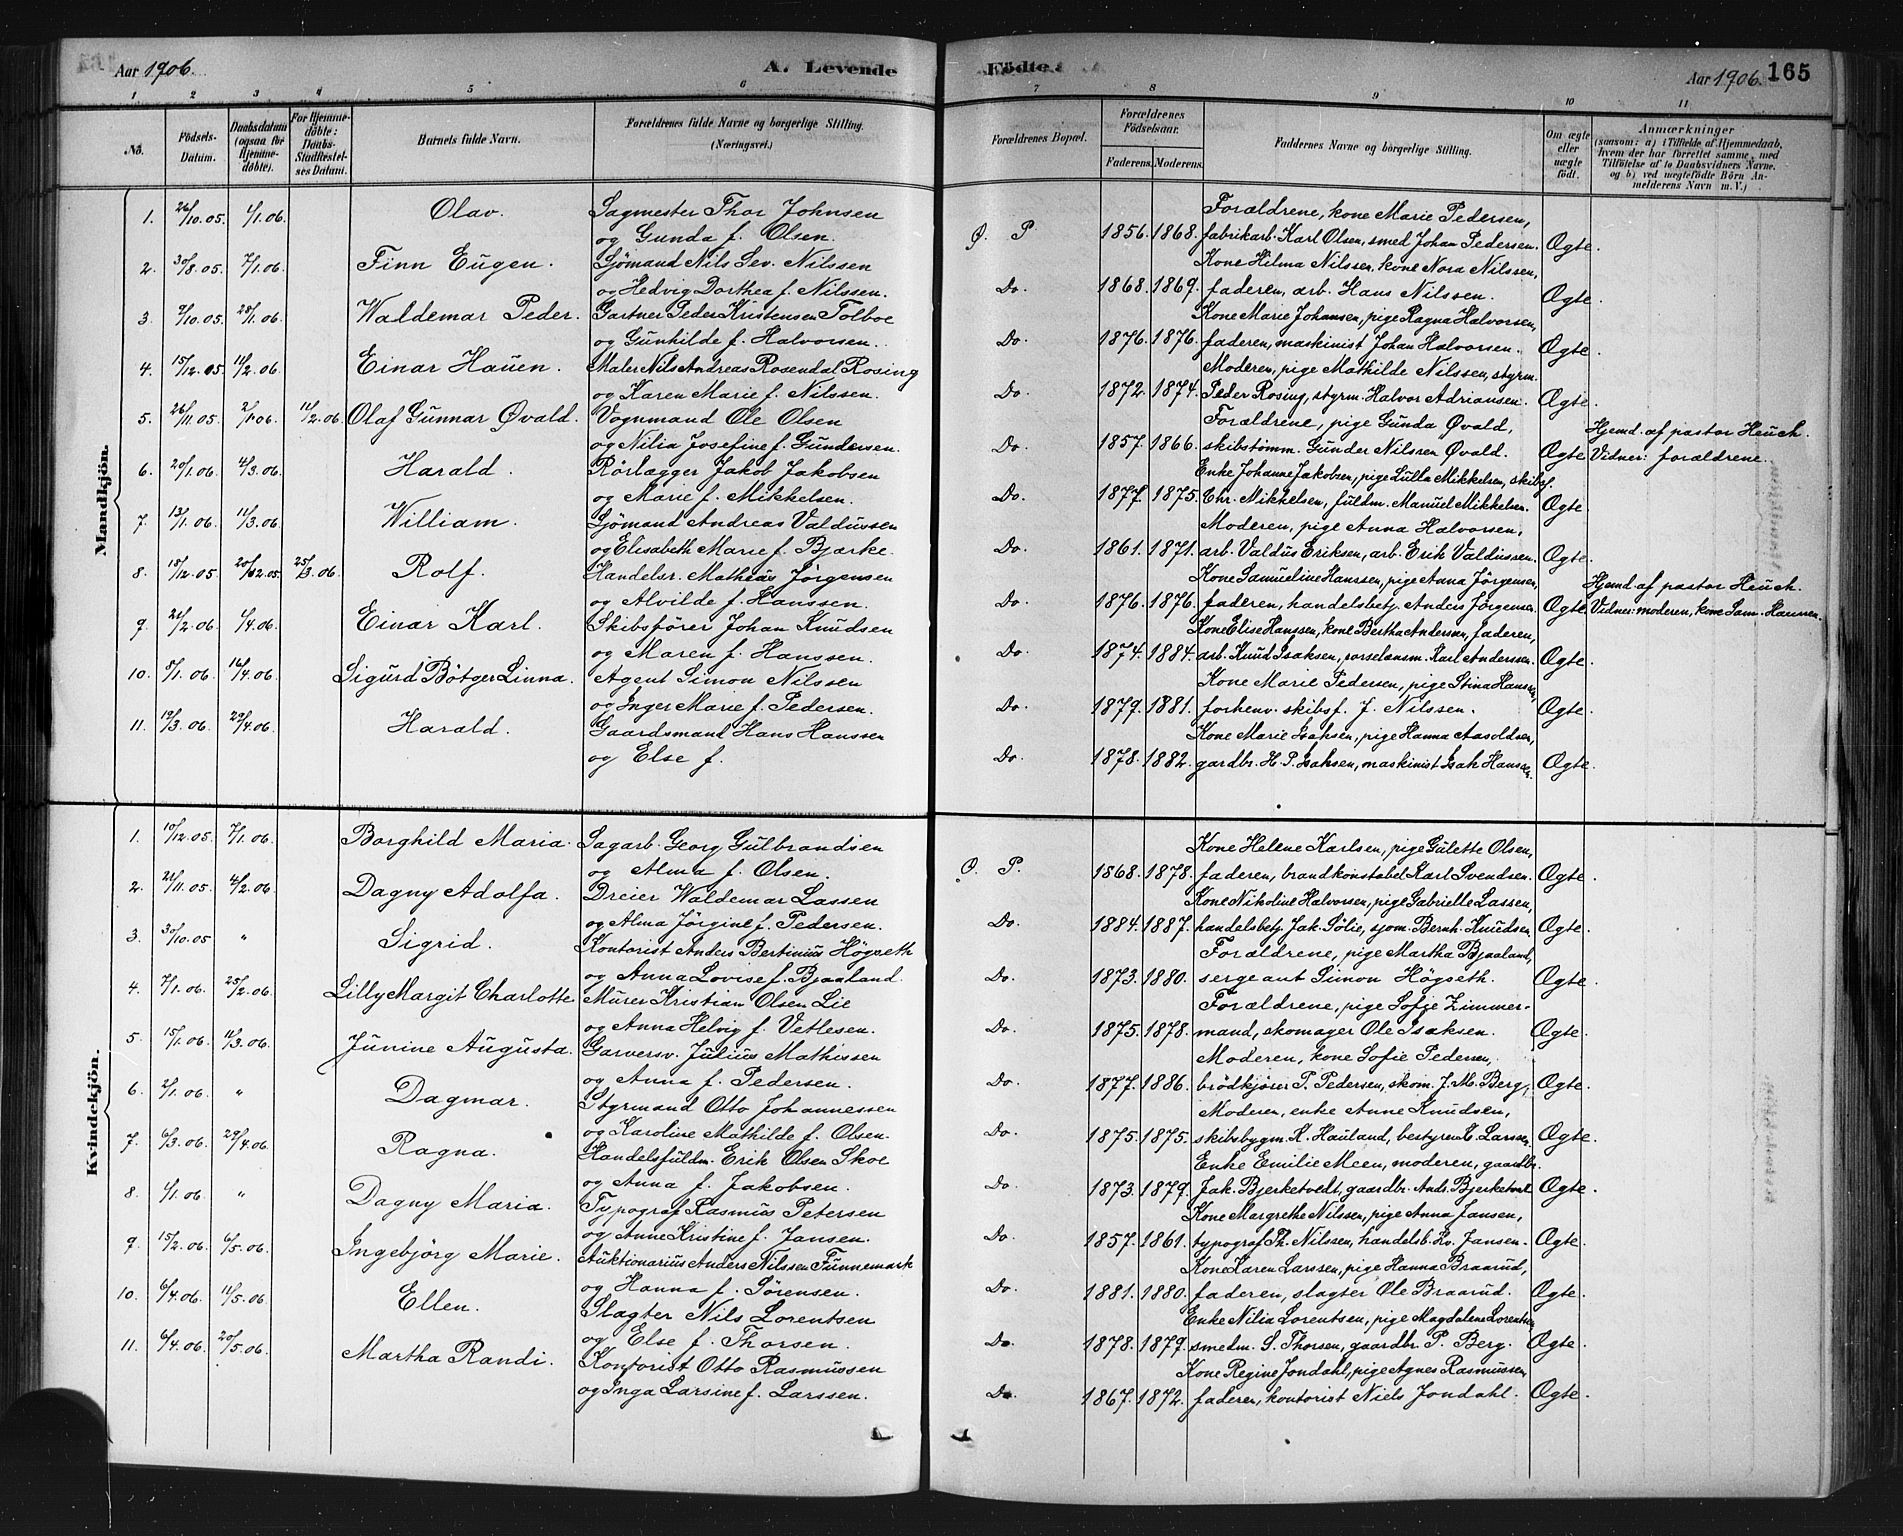 Aar 1906. A. Levende Födte. Aar 1906. 165
1 2 3 4 5 6 7 8 9 10 11
No. Födsels-Datum. Daabsdatum (ogsaa for Hjemmedöbte). For Hjemmedöbte: Daabs-Stadfæstelses Datum. Barnets fulde Navn. Forældrenes fulde Navne og borgerlige Stilling. (Næringsvei.) Forældrenes Bopæl. Forældrenes Födselsaar. Faderens. Moderens. Faddernes Navne og borgerlige Stilling. Om ægte eller uægte födt. Anmærkninger (saasom: a) i Tilfælde af Hjemmedaab, hvem der har forrettet samme, med Tilföielse af to Daabsvidners Navne, og b) ved uægtefödte Börn Anmelderens Navn m. V.)
Mandkjön.
1. 26/10.05. 1/1.06. Olav. Sagmester Thor Johnsen Forældrene, kone Marie Pedersen,
og Gunda f. Olsen. Ø. P. 1856. 1868. fabrikarb. Karl Olsen, smed Johan Pedersen. Ægte.
2. 30/8.05. 7/1.06. Finn Eugen. Sjömand Nils Sev. Nilssen Kone Hilma Nilssen, kone Nora Nilssen,
og Hedvig Dorthea f. Nilssen. Do. 1868. 1869. faderen, arb. Hans Nilssen. Ægte.
3. /10.05. 28/1.06. Waldemar Peder. Gartner Peder Kristensen Tolboe Kone Marie Johansen, pige Ragna Halvorsen,
og Gunhilde f. Halvorsen. Do. 1876. 1876. faderen, maskinist Johan Halvorsen. Ægte.
4. 15/12.05 11/2.06. Einar Hauen. Maler Nils Andreas Rosendal Rosing Moderen, pige Mathilde Nilssen, styrm.
og Karen Marie f. Nilssen. Do. 1872. 1874. Peder Rosing, styrm. Halvor Adriansen. Ægte.
5. 26/11.05. 2/1.06. 11/2.06. Olaf Gunnar Øvald. Vognmand Ole Olsen Forældrene, pige Gunda Øvald, Hjemd. af pastor Heuch.
og Nilia Josefine f. Gundersen. Do. 1857. 1866. skibstømm. Gunder Nilssen Øvald. Ægte Vidner: forældrene.
6. 20/1.06. 4/3.06. Harald. Rörlægger Jakob Jakobsen Enke Johanne Jakobsen, pige Lulla Mikkelsen, skibsf.
og Marie f. Mikkelsen. Do. 1877. 1875. Chr. Mikkelsen, fuldm. Manuel Mikkelsen. Ægte
7. 13/1.06. 11/3.06. William. Sjömand Andreas Valdussen Moderen, pige Anna Halvorsen,
og Elisabeth Marie f. Bjerke. Do. 1861. 1871. arb. Valdus Eriksen, arb. Erik Valdussen. Ægte.
8. 18/12.05. 20/12.05. 25/3.06. Rolf. Handelsr. Mathias Jörgensen Kone Samueline Hanssen, pige Anna Jörgensen, Hjemd. af pastor Heuch.
og Alvilde f. Hanssen. Do. 1876. 1876. faderen, handelsbetj. Anders Jörgensen. Ægte Vidner: moderen, kone Sam. Hanssen.
9. 21/2.06. 1/4.06. Einar Karl. Skibsförer Johan Knudsen Kone Elise Hanssen, kone Bertha Andersen, faderen,
og Maren f. Hanssen. Do. 1874. 1884. arb. Knud Isaksen, porselansm. Karl Anderssen. Ægte.
10. 5/1.06. 16/4.06. Sigurd Bötger Linna. Agent Simon Nilssen Kone Marie Pedersen, pige Stina Hanssen,
og Inger Marie f. Pedersen. Do. 1879. 1881. forhenv. skibsf. J. Nilssen. Ægte.
11. 19/3.06. 29/4.06. Harald. Gaardsmand Hans Hanssen Kone Marie Isaksen, pige Hanna Aasoldsen,
og Else f. Do. 1878. 1882. gardbr. H. P. Isaksen, maskinist Isak Hanssen. Ægte.
Kvindekjön.
1. 10/12.05. 7/1.06. Borghild Maria. Sagarb. Georg Gulbrandsen Kone Helene Karlsen, pige Gulette Olsen,
og Alma f. Olsen. Ø. P. 1868. 1878. faderen, brandkonstabel Karl Svendsen. Ægte.
2. 21/11.05. 4/2.06. Dagny Adolfa. Dreier Waldemar Lassen Kone Nikoline Halvorsen, pige Gabrielle Lassen,
og Alma Jörgine f. Pedersen. Do. 1884. 1887. handelsbetj. Jak. Sölie, sjom. Bernh. Knudsen. Ægte.
3. 30/10.05 " Sigrid. Kontorist Anders Bertinius Högseth Forældrene, pige Martha Bjaaland,
og Anna Lovise f. Bjaaland. Do. 1873. 1880. sergeant Simon Högseth. Ægte.
4. 7/1.06. 25/2.06. Lilly Margit Charlotte Murer Kristian Olsen Lie Forældrene, pige Sofje Zimmer-
og Anna Helvig f. Vetlesen. Do. 1875. 1878. mand, skomager Ole Isaksen. Ægte.
5. 15/1.06. 11/3.06. Junine Augusta. Garversv. Julius Mathissen Moderen, kone Sofie Pedersen,
og Anna f. Pedersen. Do. 1877. 1886. brödkjører P. Pedersen, skom. J. M. Berg, Ægte.
6. 2/1.06. " Dagmar. Styrmand Otto Johannessen Moderen, enke Anne Knudsen,
og Karoline Mathilde f. Olsen. Do. 1875. 1875. skibsbygm. K. Hauland, bestyrer L. Larssen. Ægte.
7. 6/3.06. 29/4.06. Ragna. Handelsfuldm. Erik Olsen Skoe Enke Emilie Meen, moderen, gaardbr.
og Anna f. Jakobsen. Do. 1873. 1879. Jak. Bjerketvedt, gaardbr. Ands. Bjerketvedt Ægte.
8. 1/1.06. " Dagny Maria. Typograf Rasmus Petersen Kone Margrethe Nilssen, pige Anna Jansen,
og Anne Kristine f. Jansen. Do. 1857. 1861. typograf Th. Nilssen, handelsb. Kr. Jansen. Ægte.
9. 15/2.06. 6/5.06. Ingebjörg Marie. Auktionarius Anders Nilssen Funnemark Kone Karen Larssen, pige Hanna Braarud,
og Hanna f. Sörensen. Do. 1881. 1880. faderen, slagter Ole Braarud. Ægte.
10. 6/4.06. 11/5.06. Ellen. Slagter Nils Lorentsen Enke Nilia Lorentsen, pige Magdalene Lorentsen,
og Else f. Thorsen. Do. 1878. 1879. smedm. S. Thorsen, gaardbr. P. Berg. Ægte.
11. 6/4.06. 20/5.06. Martha Randi. Kontorist Otto Rasmussen Kone Regine Jondahl, pige Agnes Rasmussen
og Inga Larsine f. Larssen. Do. 1867. 1872. faderen, kontorist Niels Jondahl. Ægte.